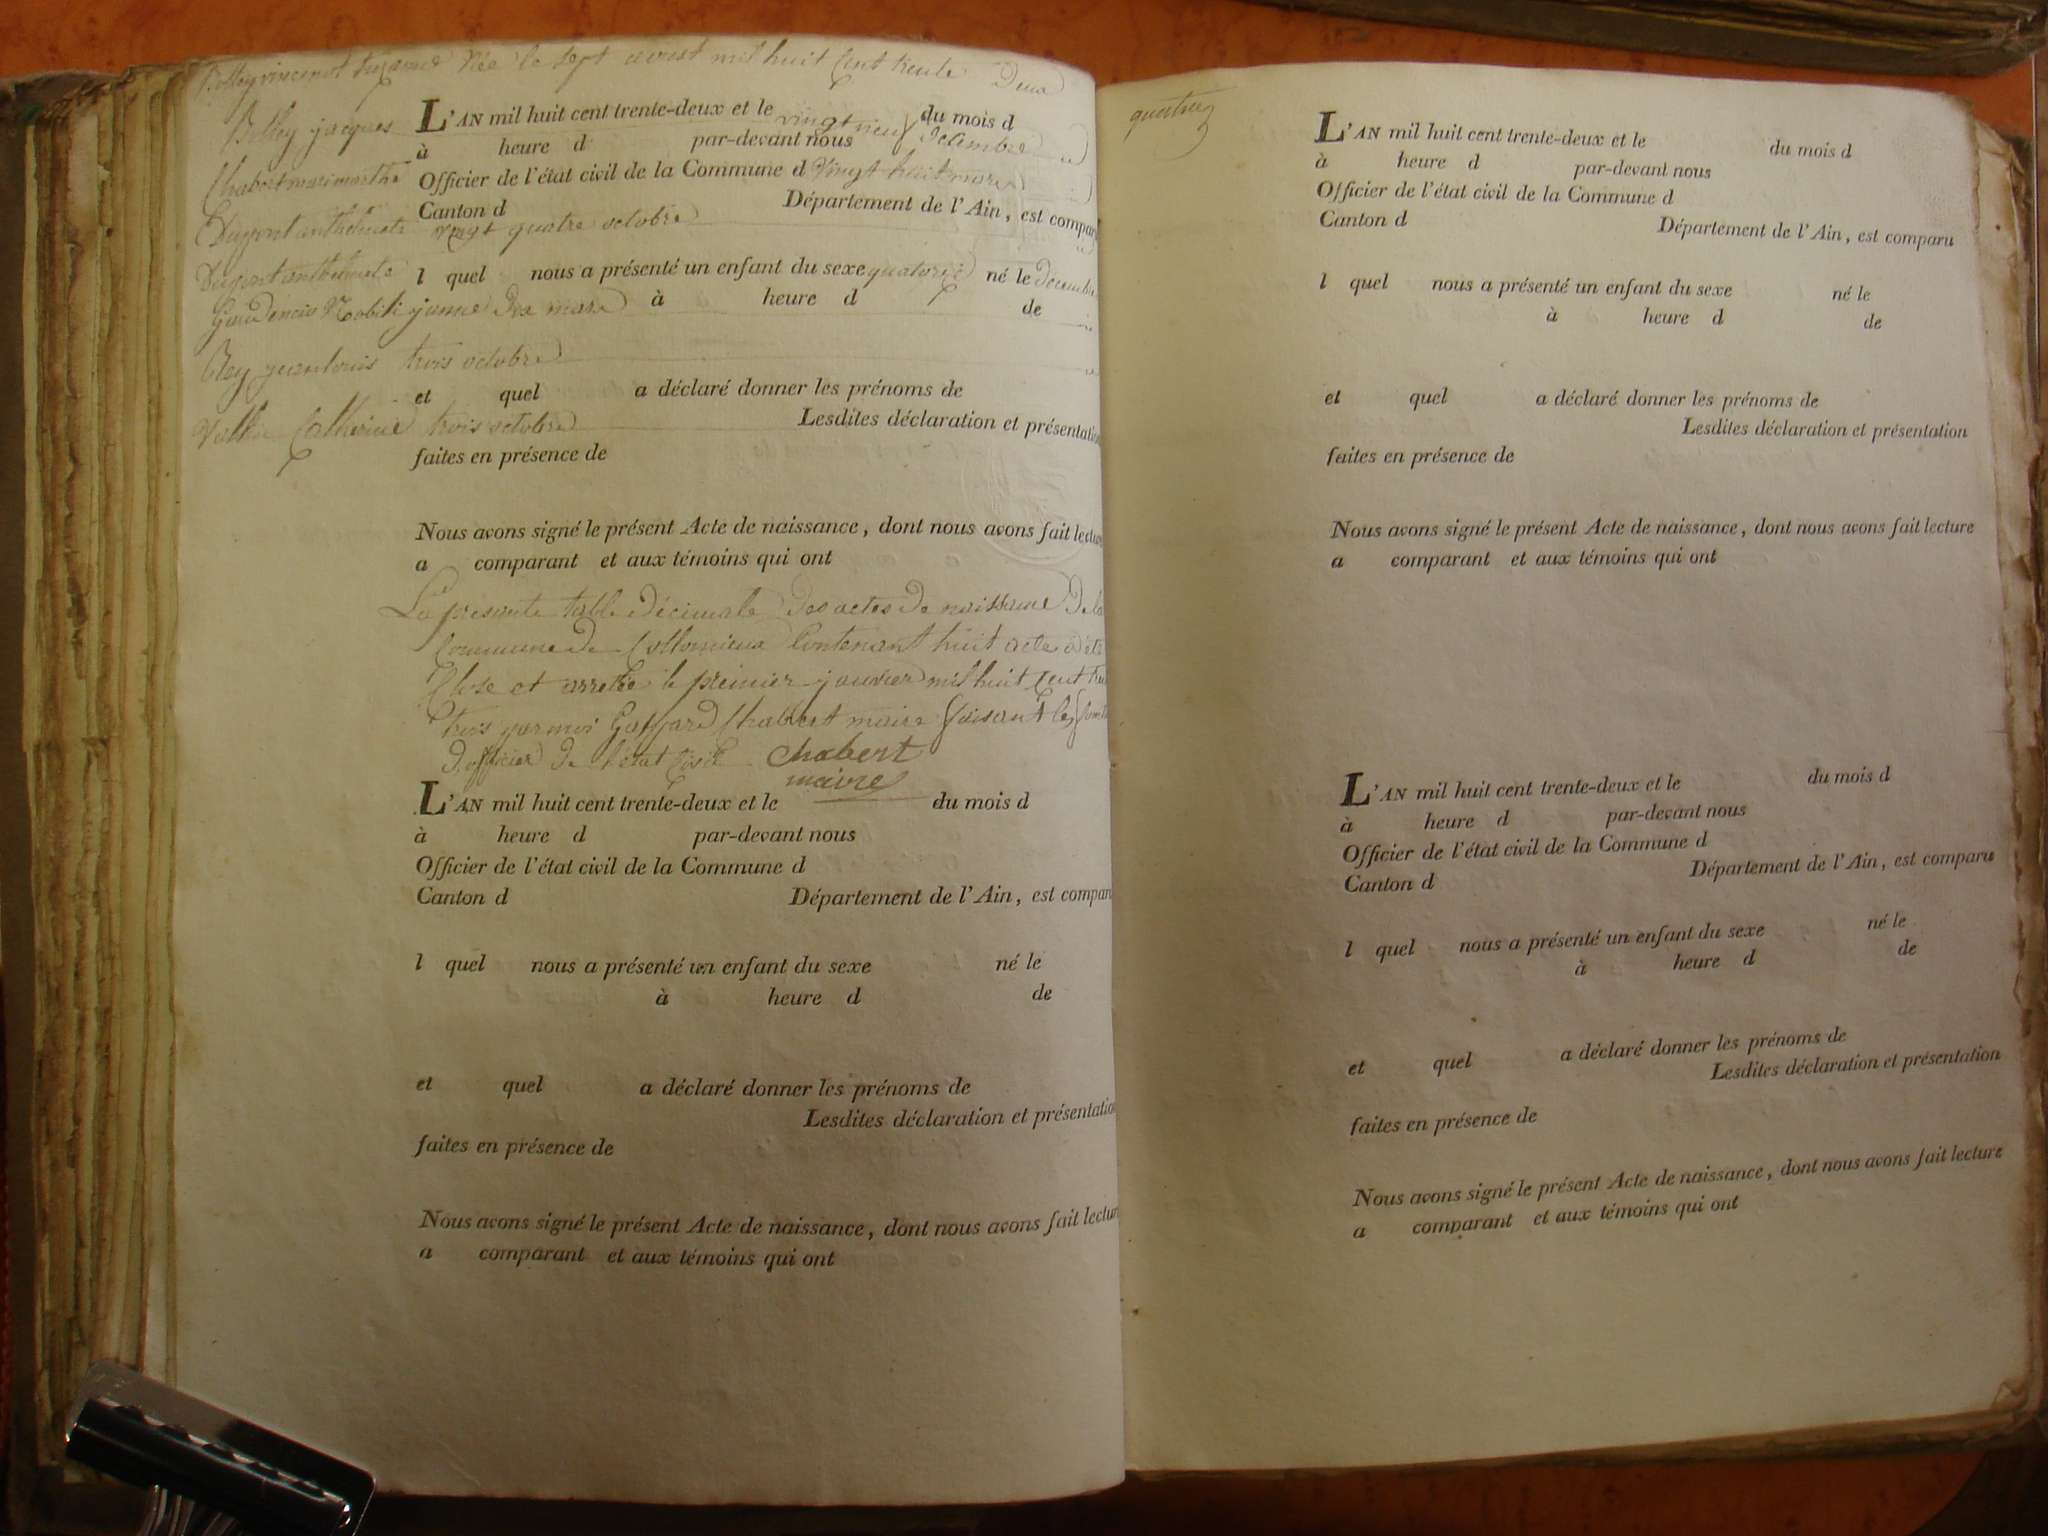 née le sept aoust mil huit cent trente deux
jacques
L'AN mil huit cent trente-deux et le vingt neuf du mois d décembre
à heure d par-devant nous
Chabert marimarthe
Officier de l'état civil de la Commune d vingt huit mars
Canton d Département de l'Ain, est compar
Dupont anthelmete vingt quatre octobre
Dupont anthelmete
l quel nous a présenté un enfant du sexe quatorze né le décembre
à heure d de
Gaudencio jeanne dix mars
jean louis trois octobre
et quel a déclaré donner les prénoms de
Catherine trois octobre
Lesdites déclaration et présentation
faites en présence de
Nous avons signé le présent Acte de naissance, dont nous avons fait lectur
a comparant et aux témoins qui ont
La presente table décimale des actes de naissance de la
Commune de Collomieux Contenant huit acte a été
Close et arretée le premier janvier mil huit cent tren
trois par moi Gaspard Chabert maire faisant les foncti
d'officier de l'état civil Chabert
maire
L'AN mil huit cent trente-deux et le du mois d
à heure d par-devant nous
Officier de l'état civil de la Commune d
Canton d Département de l'Ain, est compar
l quel nous a présenté un enfant du sexe né le
à heure d de
et quel a déclaré donner les prénoms de
Lesdites déclaration et présentation
faites en présence de
Nous avons signé le présent Acte de naissance, dont nous avons fait lectur
a comparant et aux témoins qui ont
quatre
L'AN mil huit cent trente-deux et le du mois d
à heure d par-devant nous
Officier de l'état civil de la Commune d
Canton d Département de l'Ain, est comparu
l quel nous a présenté un enfant du sexe né le
à heure d de
et quel a déclaré donner les prénoms de
Lesdites déclaration et présentation
faites en présence de
Nous avons signé le présent Acte de naissance, dont nous avons fait lecture
a comparant et aux témoins qui ont
L'AN mil huit cent trente-deux et le du mois d
à heure d par-devant nous
Officier de l'état civil de la Commune d
Canton d Département de l'Ain, est comparu
l quel nous a présenté un enfant du sexe né le
à heure d de
et quel a déclaré donner les prénoms de
Lesdites déclaration et présentation
faites en présence de
Nous avons signé le présent Acte de naissance, dont nous avons fait lecture
a comparant et aux témoins qui ont